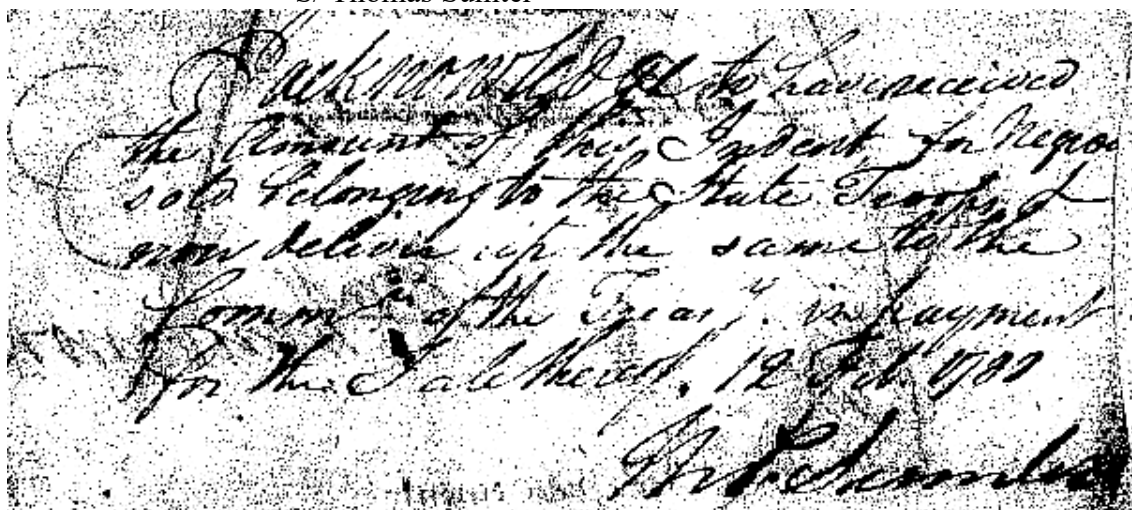 S/ Thomas Sumter
I acknowledge to have received
the Amount of this Indent for Negroes
sold belonging to the State Troops, I
now deliver up the same to the
Commrs. of the Treasy. in payment
for the Sale thereof. 12 Feb.
Thos. Sumter